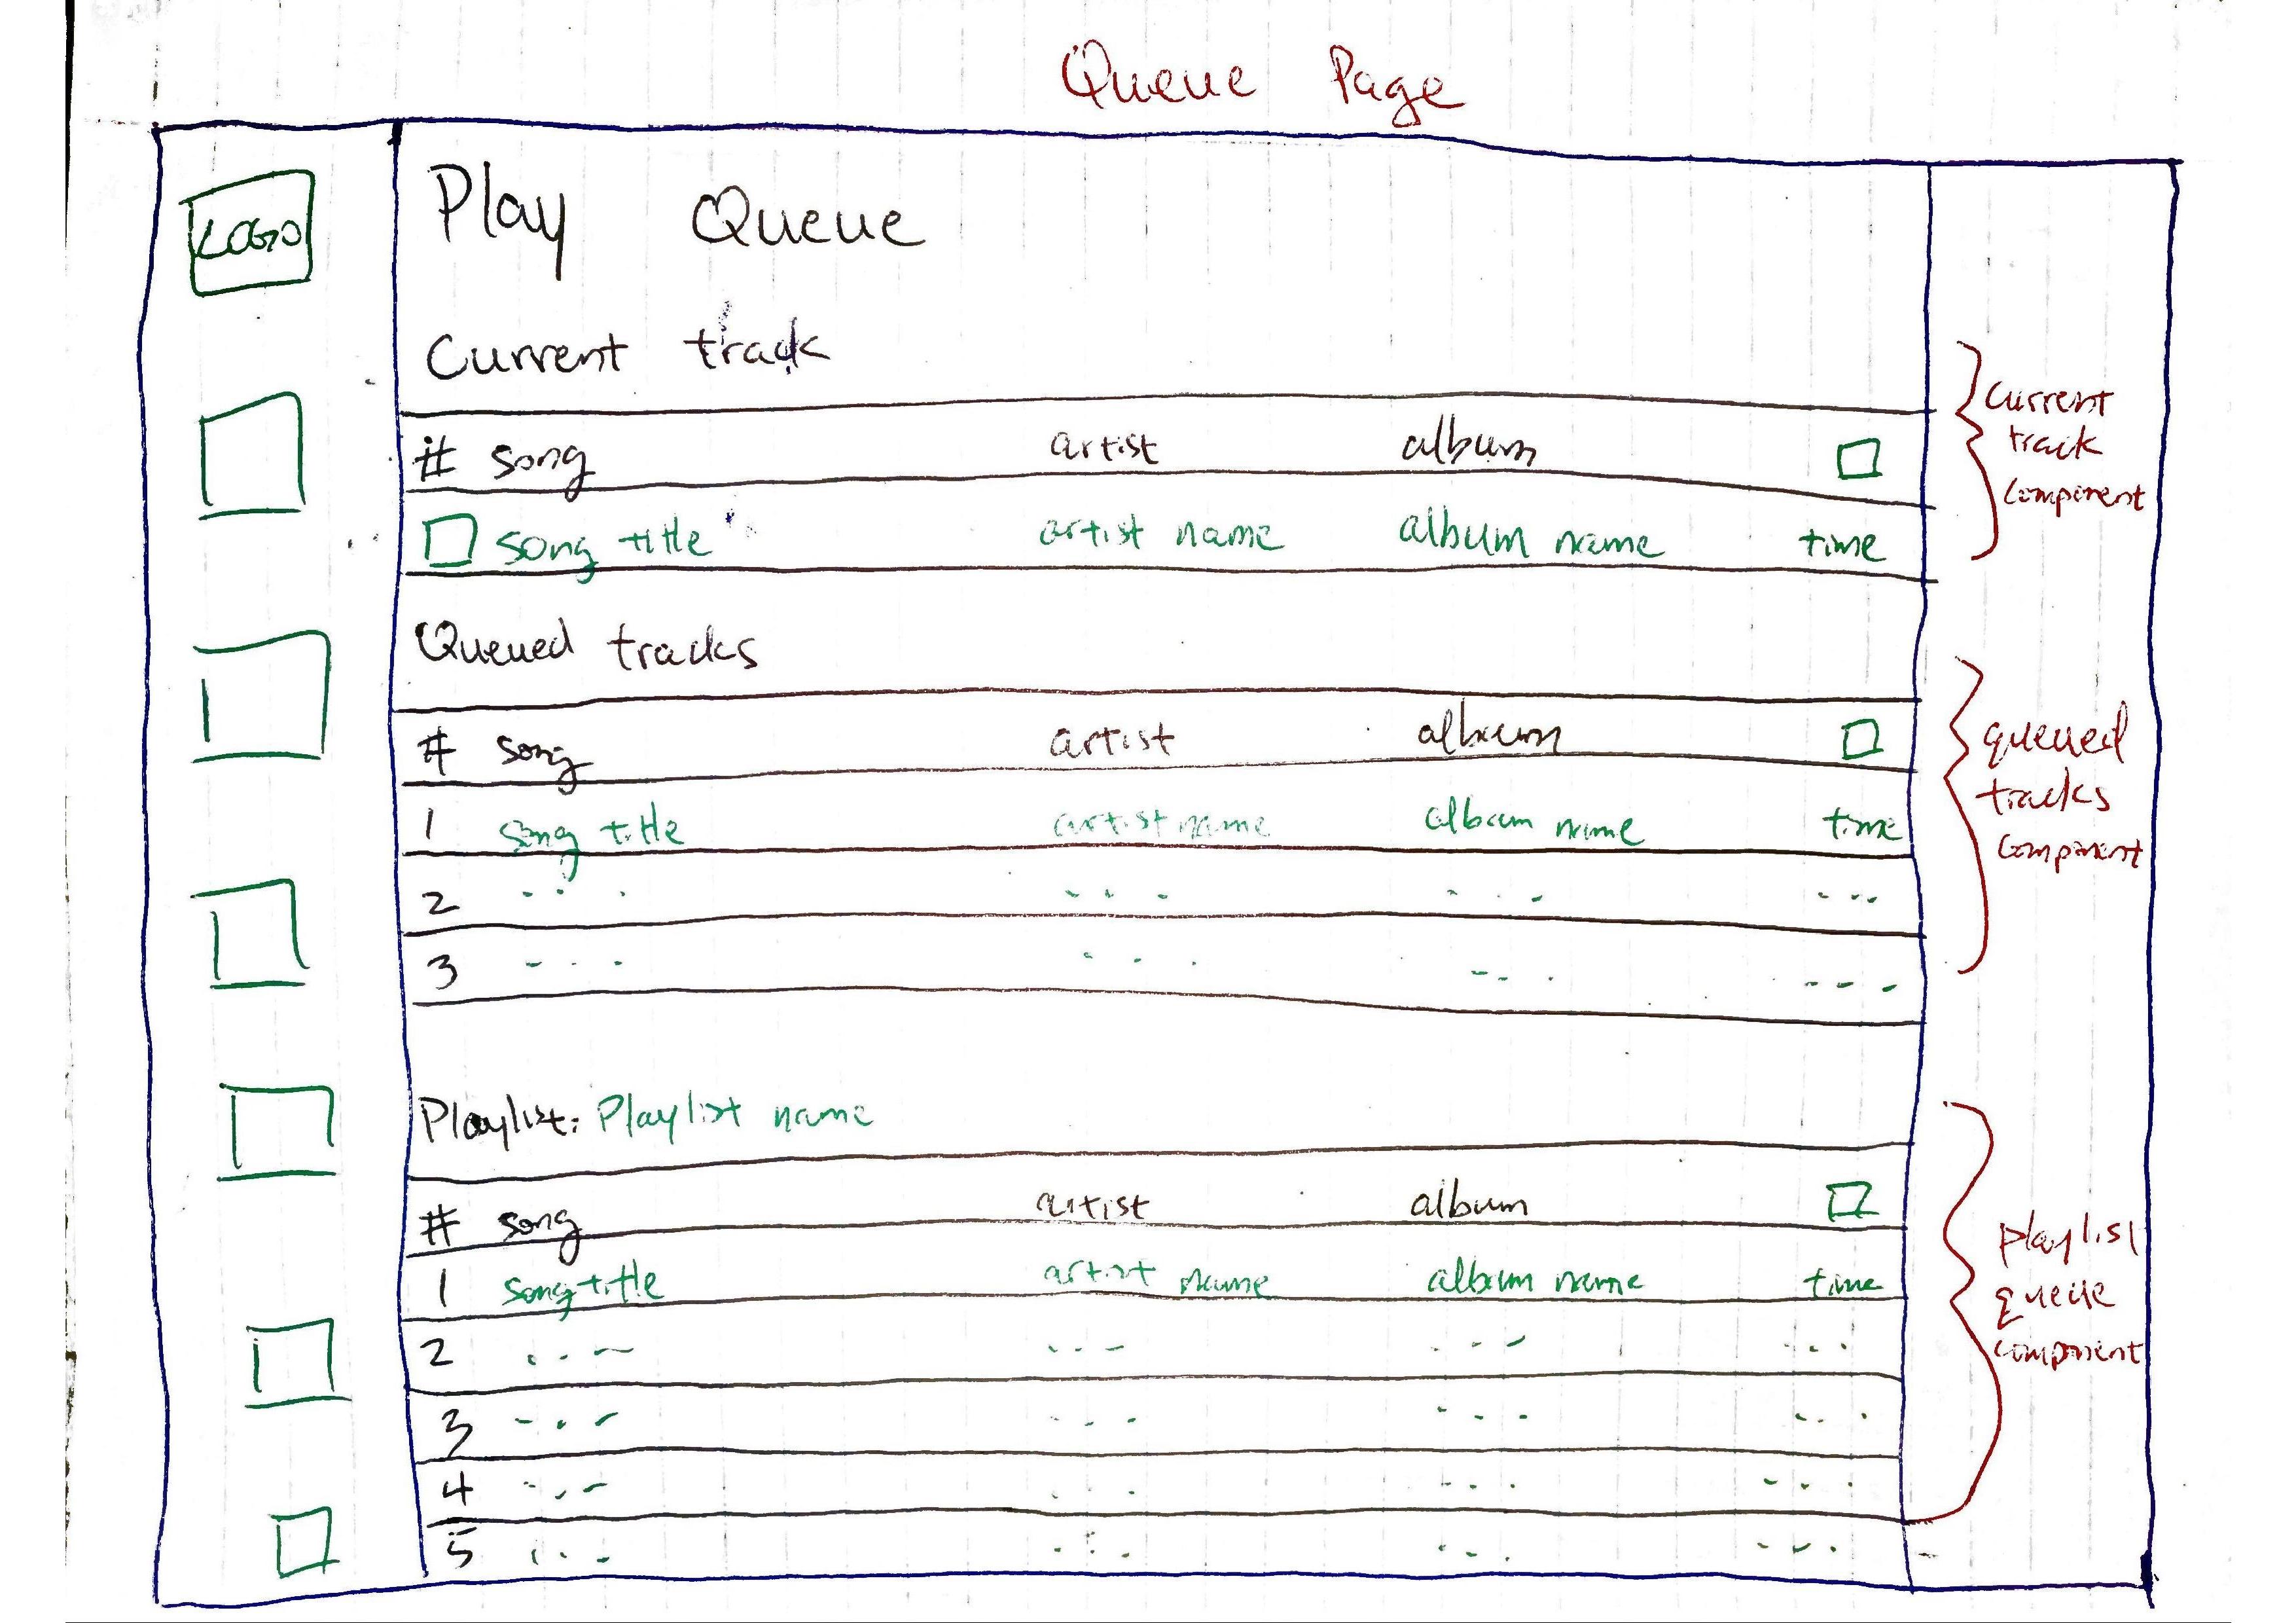 Queue Page
LOGO
Play Queue
Current track
# song artist album
song title artist name album name time
Current
track
component
Queued tracks
# song artist album
1 song title artist name album name time
2 . . . . . . . . . - - -
3 - . . . . . - - . - - -
queued
tracks
component
Playlist: Playlist name
# song artist album
1 song title artist name album name time
2 . . . . . . . . . . . .
3 . . . . . . . . . . . .
4 . . . . . . . . . . . .
5 . . . . . . . . . . . .
playlist
queue
component